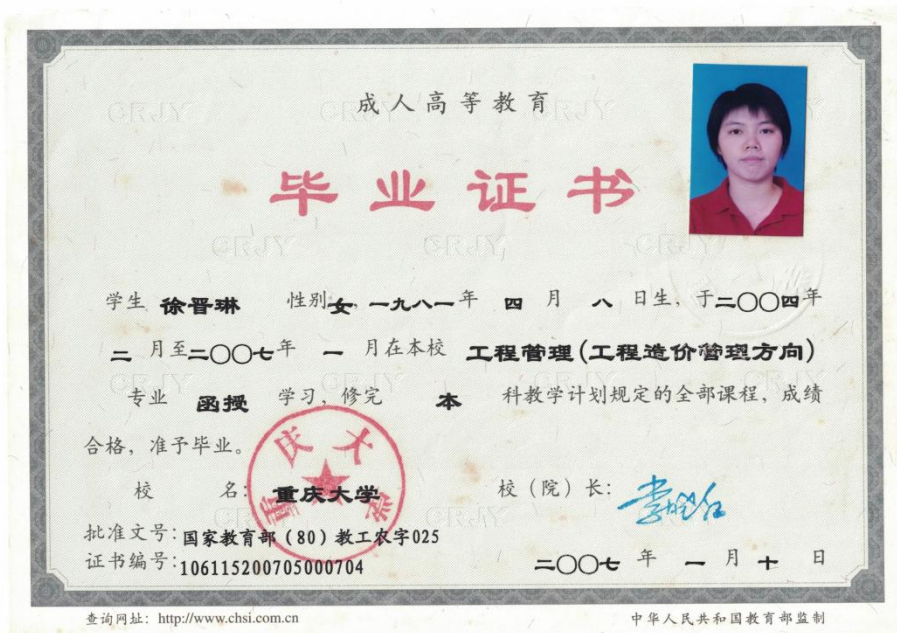 成人高等教育
毕业证书
学生 徐晋琳 性别 女，一九八一年 四 月 八 日生，于二〇〇四年
二 月至二〇〇七年 一 月在本校 工程管理(工程造价管理方向)
专业 函授 学习，修完 本 科教学计划规定的全部课程，成绩
合格，准予毕业。
重庆大学
校 名：重庆大学 校（院）长：
批准文号：国家教育部（80）教工农字025
证书编号：106115200705000704 二〇〇七 年 一 月 十 日
查询网址：http://www.chsi.com.cn 中华人民共和国教育部监制
CRJY